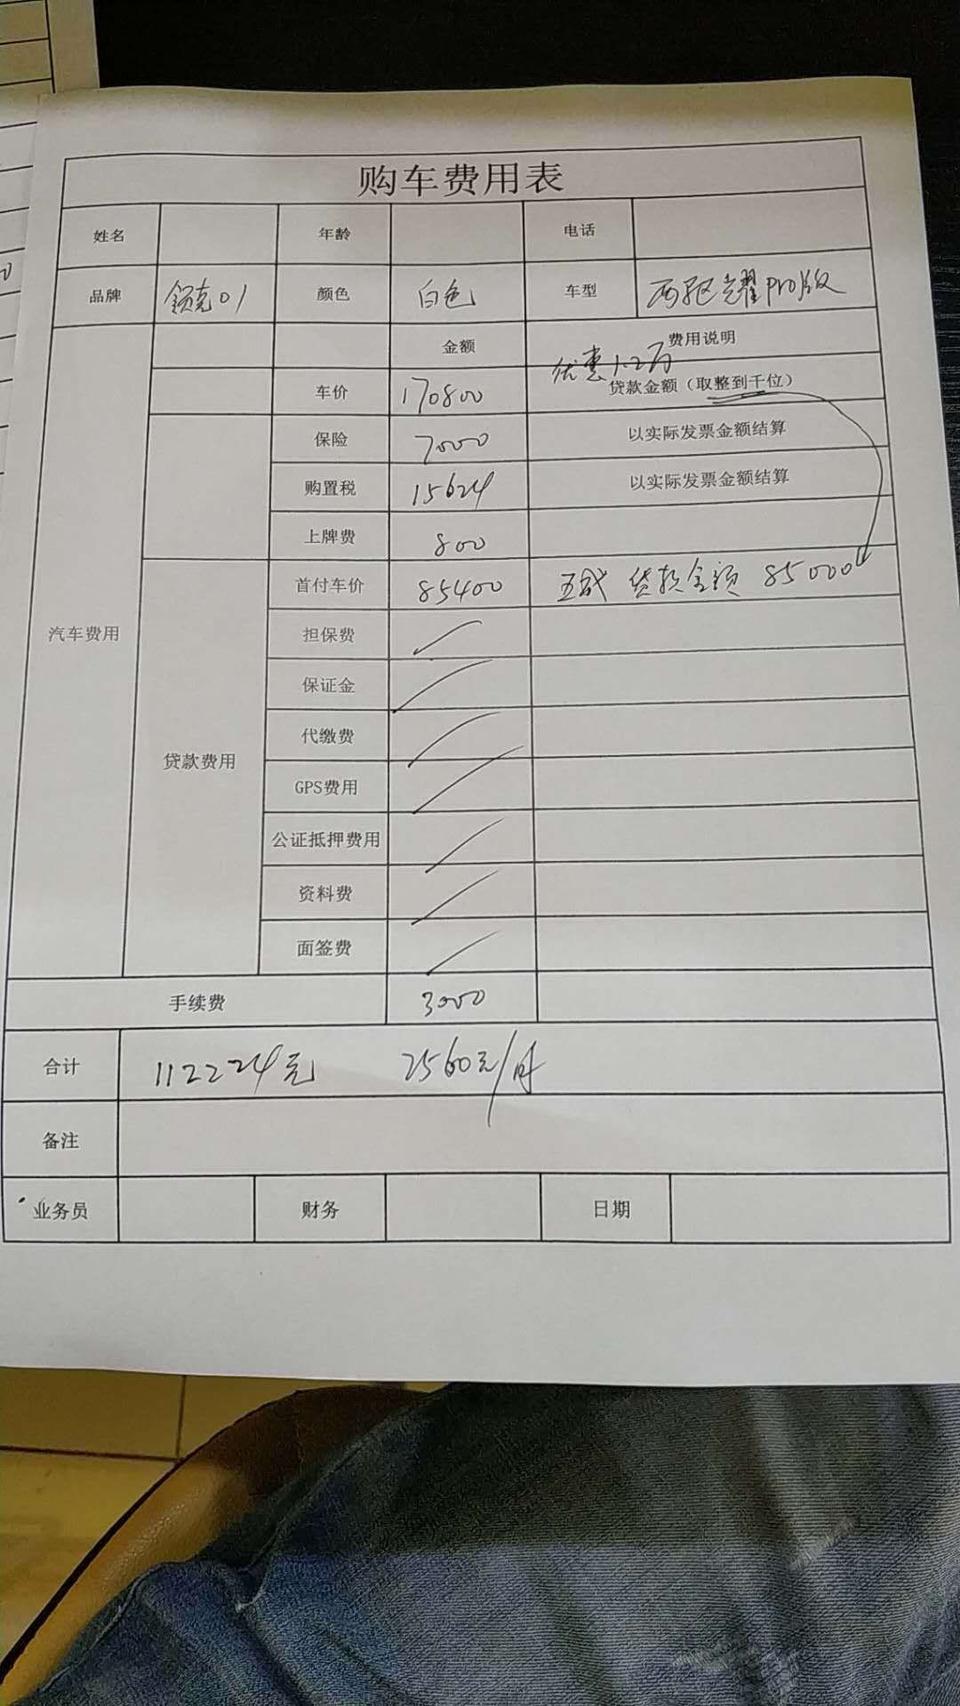 购车费用表
姓名 年龄 电话
品牌 领克01 颜色 白色 车型 两驱耀Pro版
金额 费用说明
优惠1.2万
车价 170800 贷款金额（取整到千位）
保险 7000 以实际发票金额结算
购置税 15624 以实际发票金额结算
上牌费 800
首付车价 85400 五成 贷款金额 85000
汽车费用 担保费
保证金
代缴费
贷款费用
GPS费用
公证抵押费用
资料费
面签费
手续费 3000
合计 112224元 2560元/月
备注
业务员 财务 日期